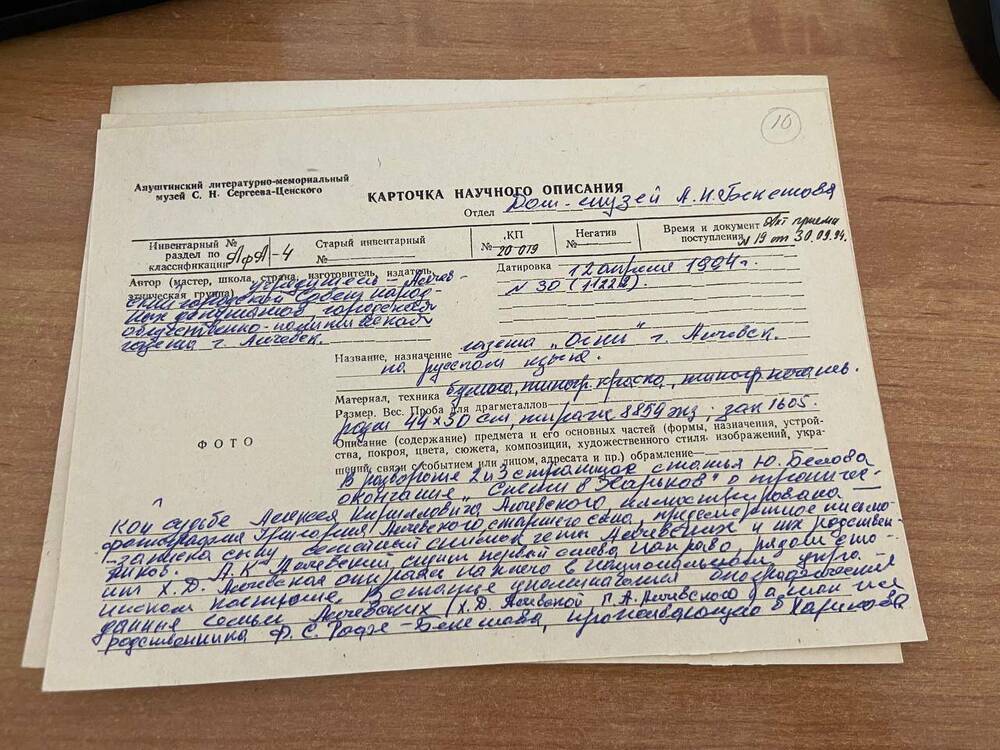 10
Алуштинский литературно-мемориальный
музей С. Н. Сергеева-Ценского
КАРТОЧКА НАУЧНОГО ОПИСАНИЯ
Отдел Дом-музей А.Н. Бекетова
Инвентарный №
раздел по
классификации АфА-4
Старый инвентарный
№
КП
№ 20-019
Негатив
№
Время и документ Акт приема
поступления № 19 от 30.09.94.
Автор (мастер, школа, страна, изготовитель, издатель,
этническая группа) учредитель – Алчев-
ский городской Совет народ-
ных депутатов, городской
общественно-политической
газеты г. Алчевск.
Датировка 12 апреля 1994 г.
№ 30 (11222).
Название, назначение газета "Огни" г. Алчевск.
на русском языке.
Материал, техника бумага, типогр. краска, типогр. печать.
Размер. Вес. Проба для драгметаллов
разм 44×30 см, тираж 8854 экз; зак 1605.
ФОТО
Описание (содержание) предмета и его основных частей (формы, назначения, устрой-
ства, покроя, цвета, сюжета, композиции, художественного стиля, изображений, укра-
шений, связи с событием или лицом, адресата и пр.) обрамление
В развороте 2 и 3 страницах статья Ю. Белова
окончание "Спеши в Харьков" о трагичес-
кой судьбе Алексея Кирилловича Алчевского иллюстрирована
фотография Григория Алчевского старшего сына, предсмертное письмо-
-записка сыну, семейный снимок четы Алчевских и их родствен-
ников. А.К. Алчевский сидит первый слева направо, рядом сто-
ит Х.Д. Алчевская опираясь на него в национальном укра-
инском костюме. В статье упоминаются биографические
данные семьи Алчевских (Х.Д. Алчевской, Г.А. Алчевского а также их
родственника Ф.С. Бекетова, проживающего в Харькове